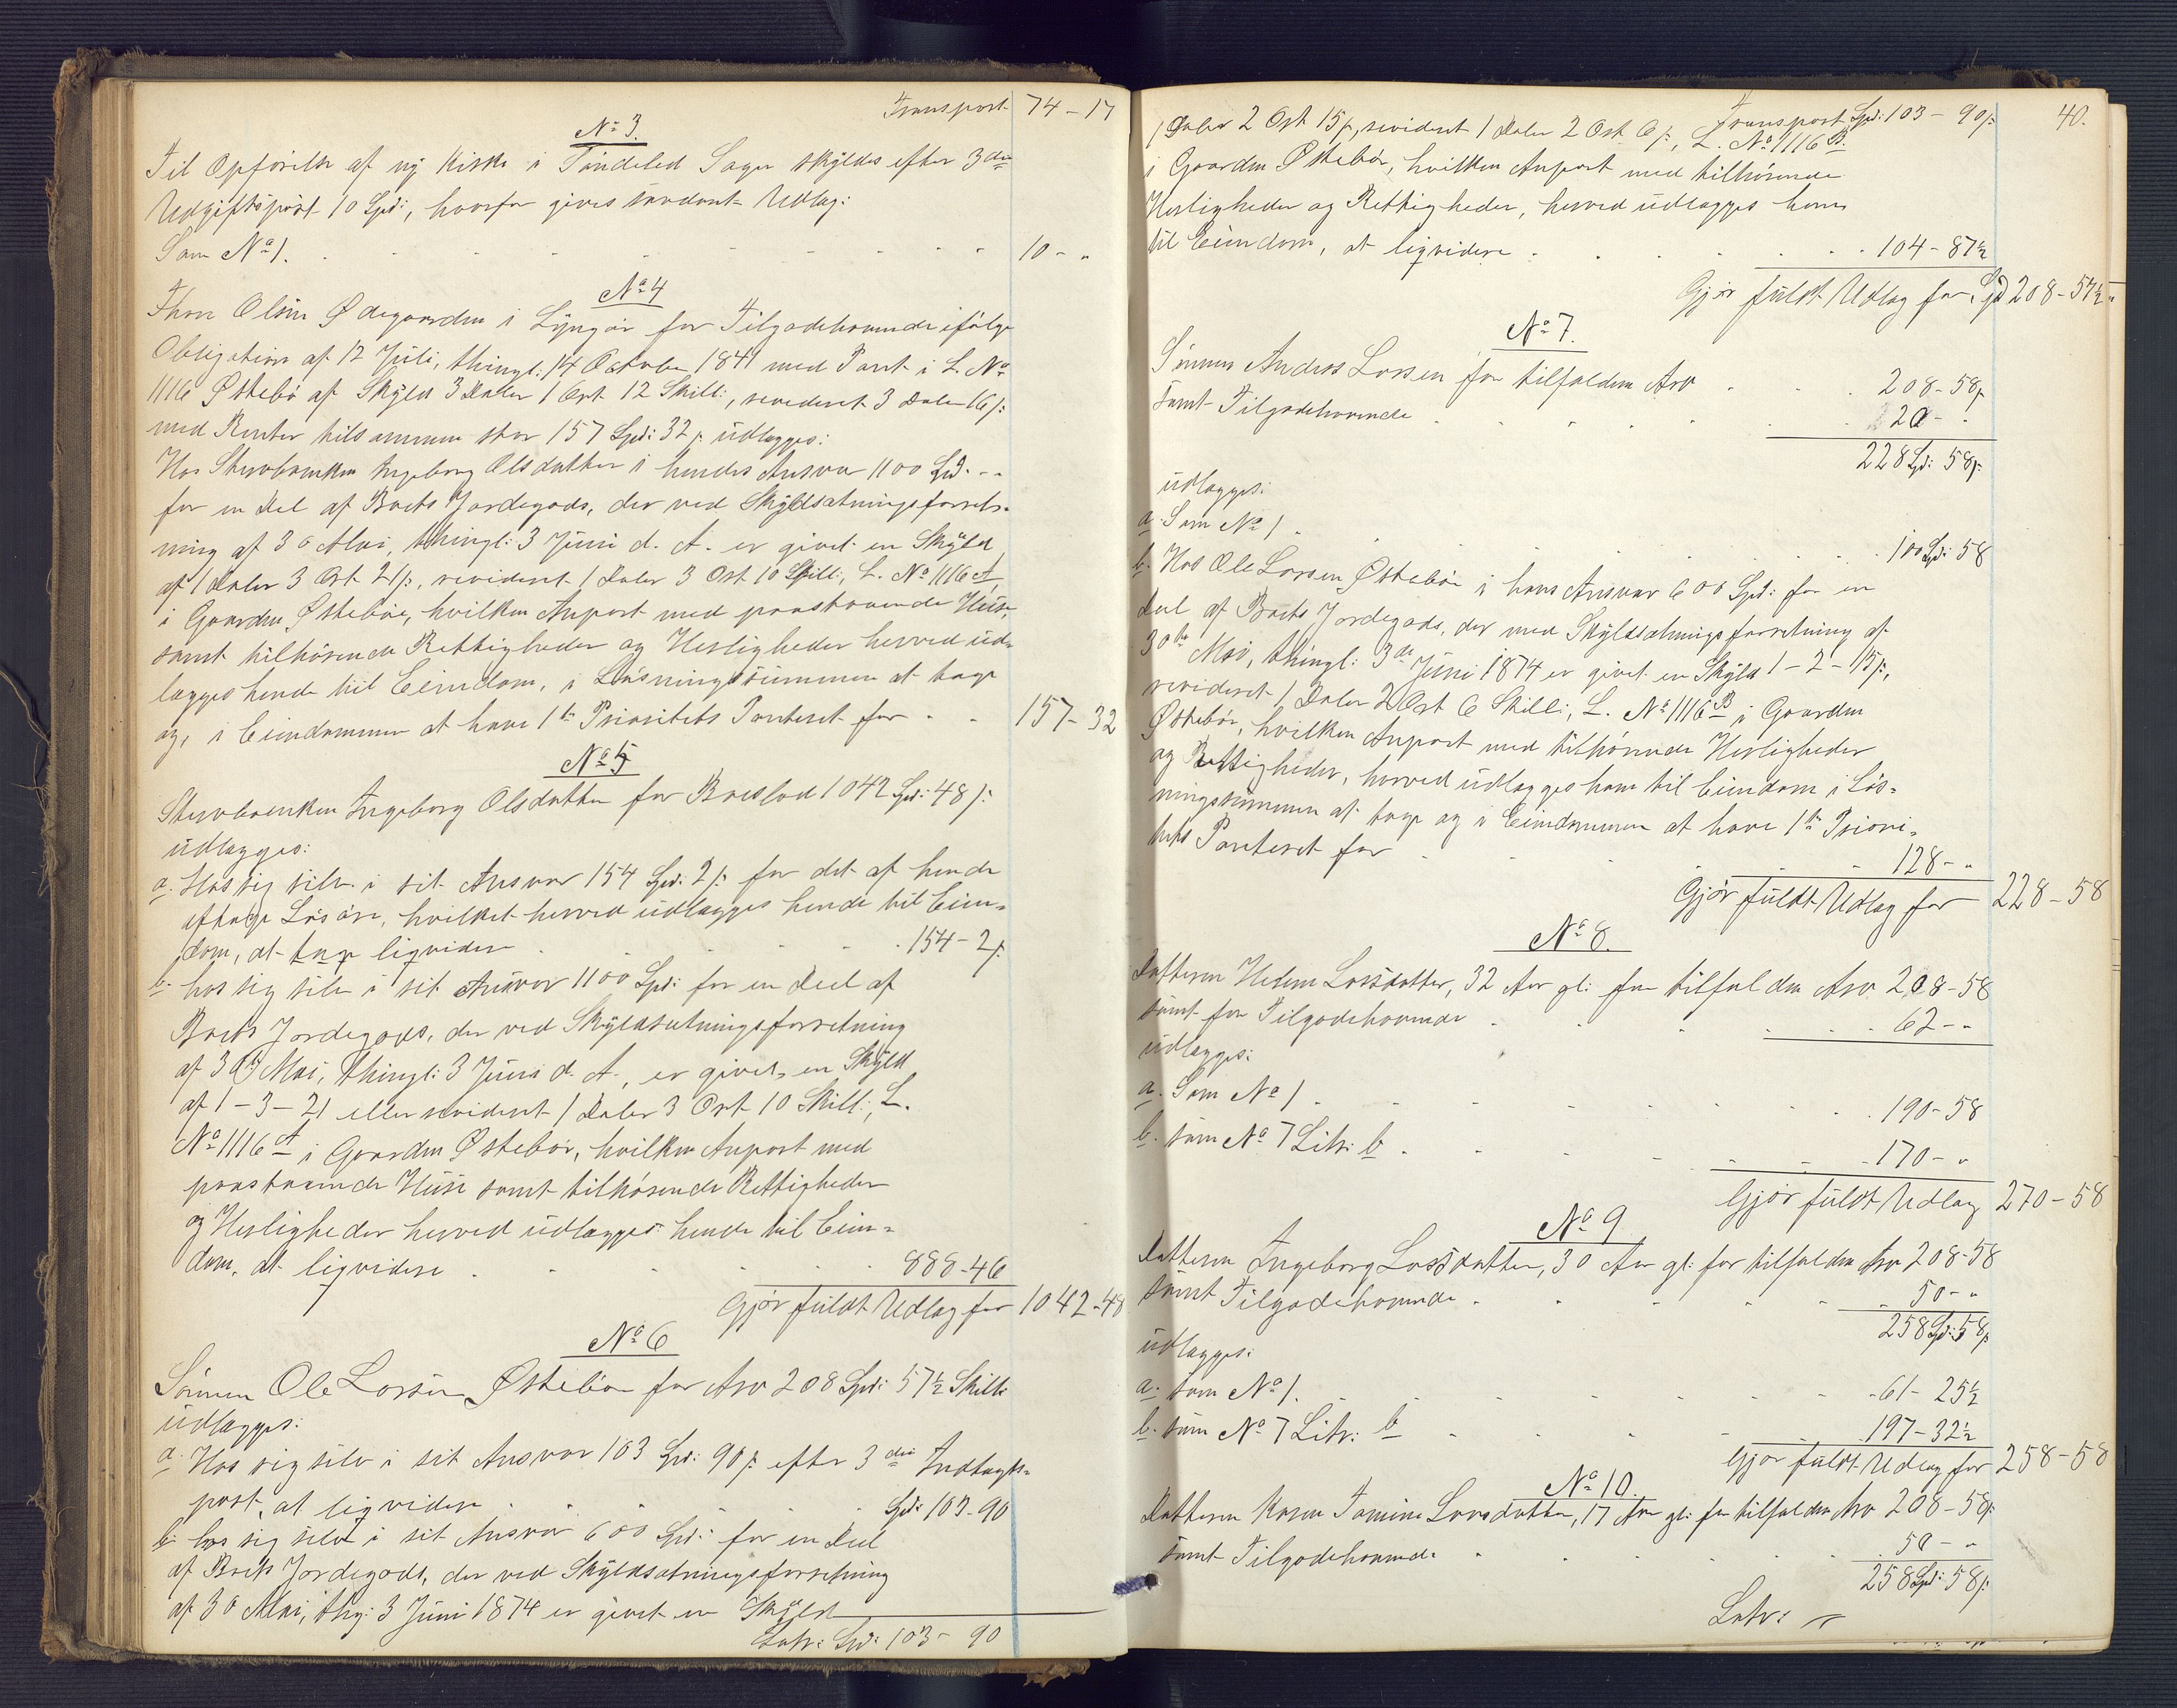 Transport 74 - 17
No 3.
Til Opførelse af ny Kirke i Søndeled Sogn skyldes efter 3die
Udgiftspost 10 Spd:, hvorfor gives saadant Udlag:
Som No 1. 10 - "
No 4
Thore Olsen Ødegaarden i Lyngør for Tilgodehavende ifølge
Obligation af 12 Juli, thingl: 14 October 1841 med Pant i L. No
1116 Østebø af Skyld 3 Daler 1 Ort 12 Skill:, revideret 3 Daler 16 s:
med Renter tilsammen stor 157 Spd: 32 s: udlægges:
Hos Stervboenken Ingeborg Olsdatter i hendes Ansvar 1100 Spd. - -
for en Del af Boets Jordegods, der ved Skyldsætningsforret-
ning af 30 Mai, thingl: 3 Juni d. A. er givet en Skyld
af 1 Daler 3 Ort 21 s:, revideret 1 Daler 3 Ort 10 Skill:, L. No 1116 A
i Gaarden Østebøe, hvilken Anpart med paastaaende Huse,
samt tilhørende Rettigheder og Herligheder herved ud-
lægges hende til Eiendom, i Løsningssummen at tage
og, i Eiendommen at have 1ste Prioritets Panteret for 157 - 32
No 5
Stervboenken Ingeborg Olsdatter for Boeslod 1042 Spd: 48 s:
udlægges:
a. Hos sig selv i sit Ansvar 154 Spd. 2 s: for det af hende
aftagne Løsøre, hvilket herved udlægges hende til Eien-
dom, at tage liqvidere 154 - 2 s:
b. hos sig selv i sit Ansvar 1100 Spd: for en Deel af
Boets Jordegods, der ved Skyldsætningsforretning
af 30te Mai, thingl: 3 Juni d. A., er givet en Skyld
af 1 - 3 - 21 eller revideret 1 Daler 3 Ort 10 Skill:, L.
No 1116 A i Gaarden Østebøe, hvilken Anpart med
paastaaende Huse samt tilhørende Rettigheder
og Herligheder herved udlægges hende til Eien-
dom, at liqvidere 888 - 46
Gjør fuldt Udlag for 1042 - 48
No 6
Sønnen Ole Larsen Østebøe for Arv 208 Spd: 57½ Skill:
udlægges:
a. Hos sig selv i sit Ansvar 103 Spd: 90 s: efter 3die Indtægts-
post, at liqvidere Spd: 103 - 90
b. hos sig selv i sit Ansvar 600 Spd: for en Deel
af Boets Jordegods, der ved Skyldsætningsforretning
af 30 Mai, thg: 3 Juni 1874 er givet en Skyld
Latr: Spd: 103 - 90
Transport Spd: 103 - 90 s: 40.
1 Daler 2 Ort 15 s:, revideret 1 Daler 2 Ort 6 s:, L. No 1116 B.
i Gaarden Østebøe, hvilken Anpart med tilhørende
Herligheder og Rettigheder, herved udlægges ham
til Eiendom, at liqvidere 104 - 87½
Gjør fuldt Udlag for Spd 208 - 57½ "
No 7.
Sønnen Anders Larsen for tilfalden Arv 208 - 58 s:
samt Tilgodehavende 20 - "
228 Spd: 58 s:
udlægges:
a. Som No 1. 100 Spd: 58
b. Hos Ole Larsen Østebøe i hans Ansvar 600 Spd: for en
Deel af Boets Jordegods, der med Skyldsætningsforretning af
30te Mai, thingl: 3die Juni 1874 er givet en Skyld 1 - 2 - 15 s:,
revideret 1 Daler 2 Ort 6 Skill:, L. No 1116 B i Gaarden
Østebøe, hvilken Anpart med tilhørende Herligheder
og Rettigheder, herved udlægges ham til Eiendom i Løs-
ningssummen at tage og i Eiendommen at have 1ste Priori-
tets Panteret for 128 - "
Gjør fuldt Udlag for 228 - 58
No 8.
Datteren Helene Larsdatter, 32 Aar gl: for tilfalden Arv 208 - 58
samt for Tilgodehavende 62 - "
udlægges:
a. Som No 1. 190 - 58
b. som No 7 Litr: b. 170 - "
Gjør fuldt Udlag 270 - 58
No 9
Datteren Ingeborg Larsdatter, 30 Aar gl: for tilfalden Arv 208 - 58
samt Tilgodehavende 50 - "
258 Spd: 58 s:
udlægges:
a. som No 1. 61 - 25½
b. som No 7 Litr: b 197 - 32½
Gjør fuldt Udlag for 258 - 58
No 10.
Datteren Karen Tomine Larsdatter, 17 Aar gl: for tilfalden Arv 208 - 58 s:
samt Tilgodehavende 50 - "
258 Spd: 58 s:
Latr: "